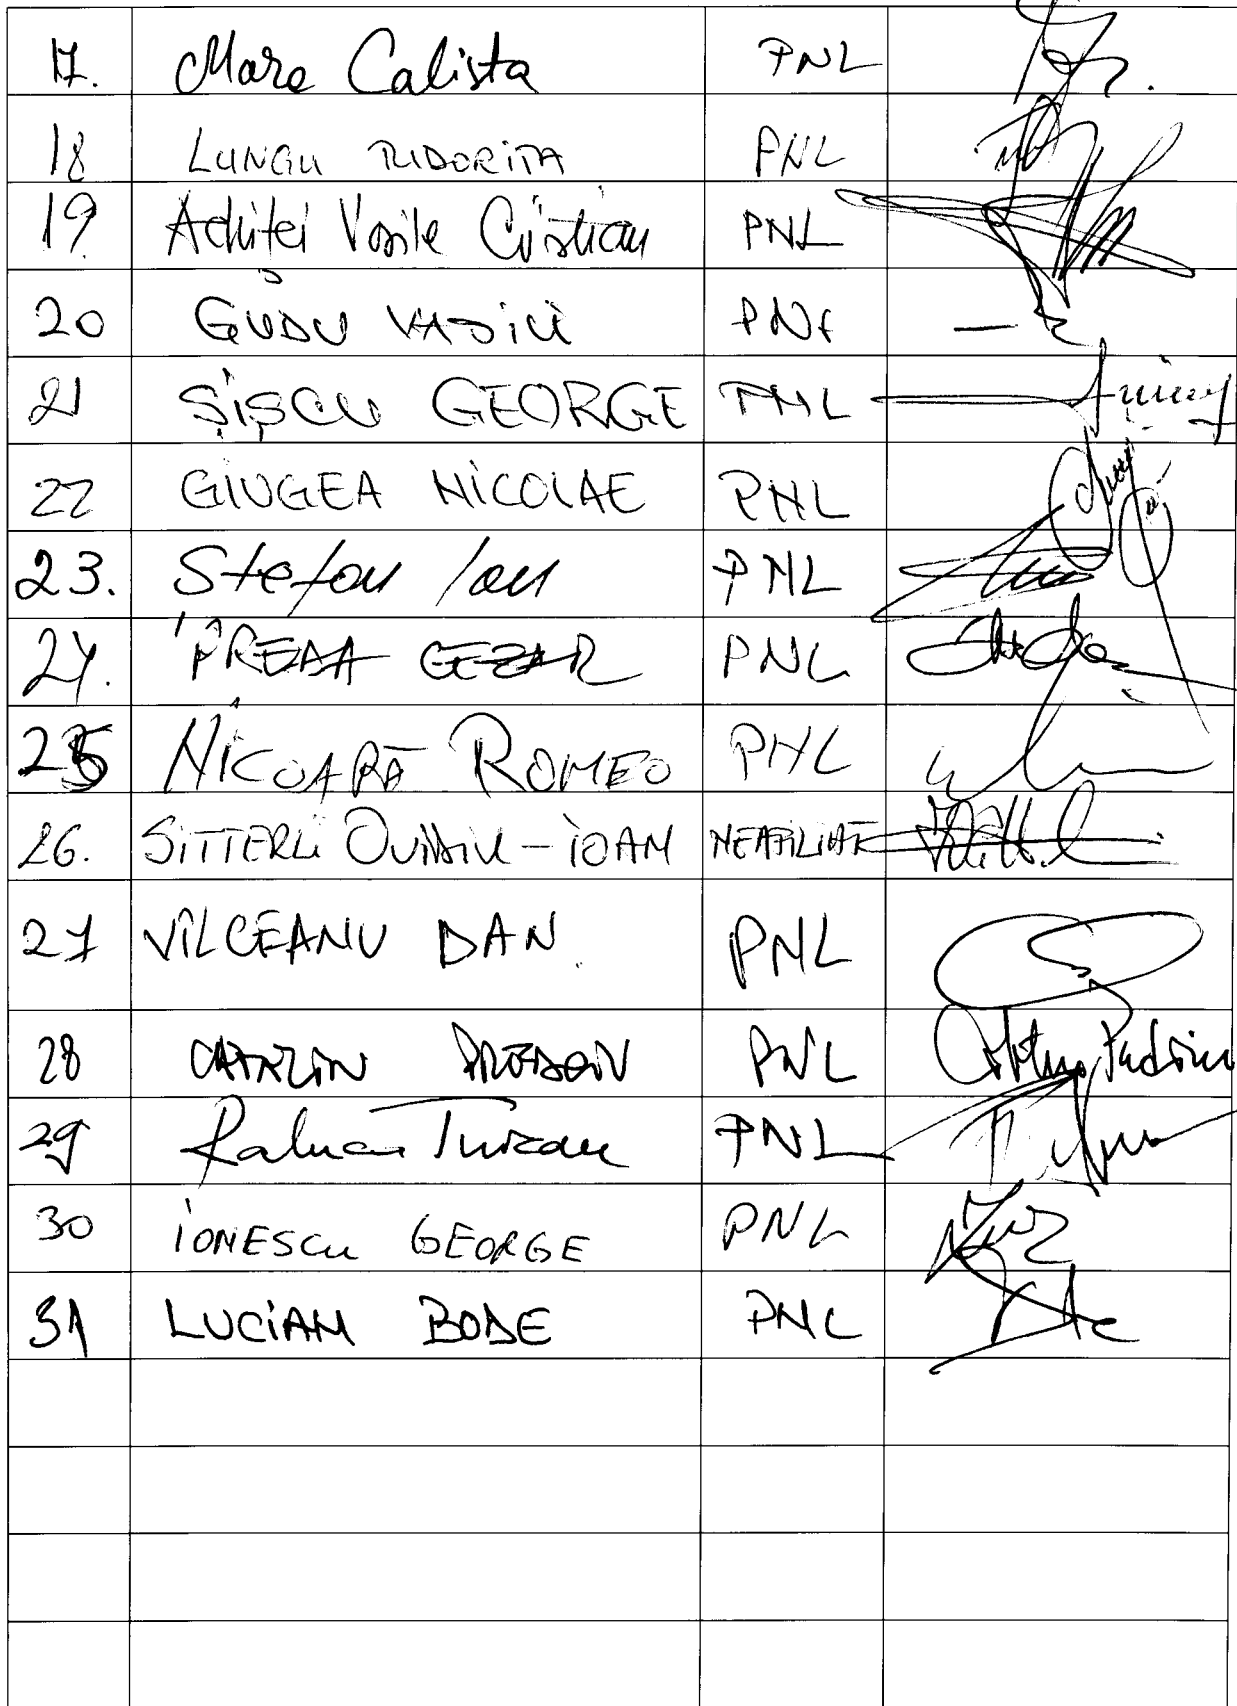 17. Mara Calista PNL
18 LUNGU TUDORIȚA PNL
19. Achiței Vasile Cristian PNL
20 GUDU VASILE PNL
21 ȘIȘCU GEORGE PNL
22 GIUGEA NICOLAE PNL
23. Stefan Ion PNL
24. PREDA CEZAR PNL
25 NICOARĂ ROMEO PNL
26. SITTERLI OVIDIU-IOAN NEAFILIAT
27 VÎLCEANU DAN. PNL
28 CATALIN PREDOIU PNL
29 Raluca Turcan PNL
30 IONESCU GEORGE PNL
31 LUCIAN BODE PNL